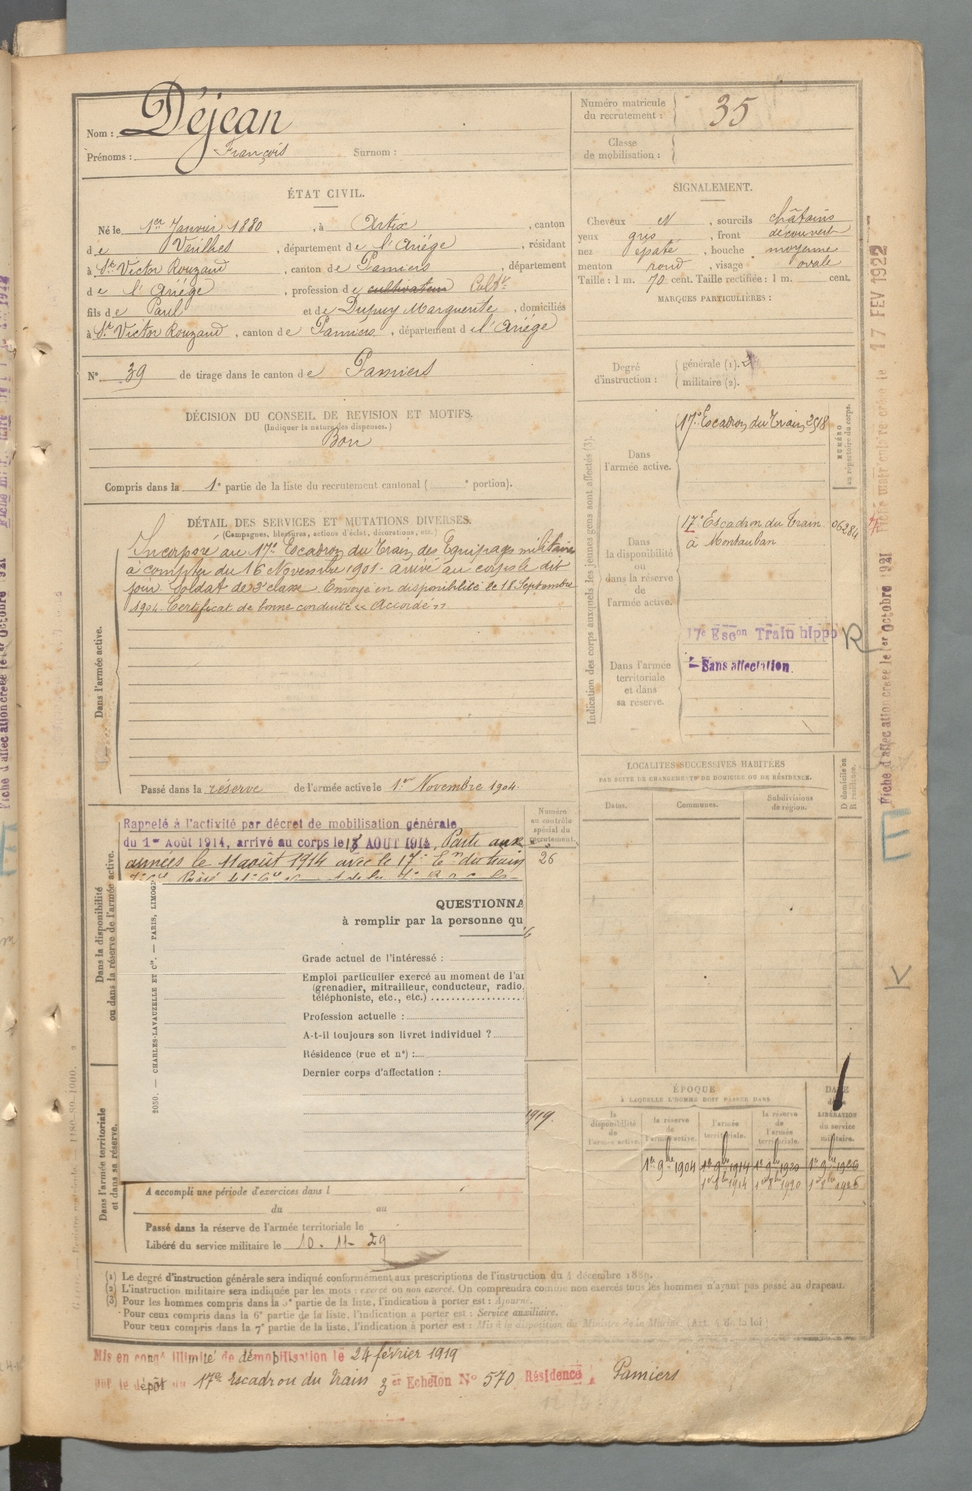 Nom : Déjean
Prénoms : François Surnom :
Numéro matricule du recrutement : 35
Classe de mobilisation :
ÉTAT CIVIL.
Né le 1er Janvier 1880, à Artix, canton
de Varilhes, département de l'Ariège, résidant
à St Victor Rouzaud, canton de Pamiers, département
de l'Ariège, profession de cultivateur Cultr
fils de Paul et de Dupuy Marguerite, domiciliés
à St Victor Rouzaud, canton de Pamiers, département de l'Ariège
N° 39 de tirage dans le canton de Pamiers
SIGNALEMENT.
Cheveux N, sourcils châtains
yeux gris, front découvert
nez épaté, bouche moyenne
menton rond, visage ovale
Taille : 1 m. 70 cent. Taille rectifiée : 1 m. cent.
MARQUES PARTICULIÈRES :
Degré d'instruction : générale (1). 2
militaire (2).
DÉCISION DU CONSEIL DE REVISION ET MOTIFS.
(Indiquer la nature des dispenses.)
Bon
Compris dans la 1e partie de la liste du recrutement cantonal ( e portion).
DÉTAIL DES SERVICES ET MUTATIONS DIVERSES.
(Campagnes, blessures, actions d'éclat, décorations, etc.)
Dans l'armée active.
Incorporé au 17e Escadron du Train des Equipages militaires
à compter du 16 Novembre 1901. arrivé au corps le dit
jour Soldat de 2e classe. Envoyé en disponibilité le 18 Septembre
1904. Certificat de bonne conduite « Accordé »
Passé dans la réserve de l'armée active le 1er Novembre 1904.
Indication des corps auxquels les jeunes gens sont affectés (3).
Dans l'armée active.
17e Escadron du Train
NUMÉRO au répertoire du corps.
Dans la disponibilité ou dans la réserve de l'armée active.
17e Escadron du Train
à Montauban
06284
Dans l'armée territoriale et dans sa réserve.
17e Escon Train hippo
Sans affectation.
R
Dans la disponibilité ou dans la réserve de l'armée active.
Rappelé à l'activité par décret de mobilisation générale
du 1er Août 1914, arrivé au corps le 13 AOUT 1914, Parti aux
armées le 11 août 1914 avec le 17e Eon du train
Numéro au contrôle spécial du recrutement.
26
2050. — CHARLES-LAVAUZELLE ET Cie. — PARIS, LIMOG
QUESTIONNA
à remplir par la personne qu
Grade actuel de l'intéressé :
Emploi particulier exercé au moment de l'ar
(grenadier, mitrailleur, conducteur, radio,
téléphoniste, etc., etc.)
Profession actuelle :
A-t-il toujours son livret individuel ?
Résidence (rue et n°) :
Dernier corps d'affectation :
1919.
Dans l'armée territoriale et dans sa réserve.
A accompli une période d'exercices dans l
du au
Passé dans la réserve de l'armée territoriale le
Libéré du service militaire le 10. 11. 29
LOCALITÉS SUCCESSIVES HABITÉES
PAR SUITE DE CHANGEMENTS DE DOMICILE OU DE RÉSIDENCE.
Dates. Communes. Subdivisions de région. D domicile ou R résidence.
ÉPOQUE
À LAQUELLE L'HOMME DOIT PASSER DANS
la disponibilité de l'armée active.
la réserve de l'armée active.
l'armée territoriale.
la réserve de l'armée territoriale.
DATE de la LIBÉRATION du service militaire.
1er 9bre 1904 1er 9bre 1914 1er 9bre 1920 1er 9bre 1926
1er 8bre 1914 1er 8bre 1920 1er 8bre 1926
(1) Le degré d'instruction générale sera indiqué conformément aux prescriptions de l'instruction du 4 décembre 1889.
(2) L'instruction militaire sera indiquée par les mots : exercé ou non exercé. On comprendra comme non exercés tous les hommes n'ayant pas passé au drapeau.
(3) Pour les hommes compris dans la 5e partie de la liste, l'indication à porter est : Ajourné.
Pour ceux compris dans la 6e partie de la liste, l'indication à porter est : Service auxiliaire.
Pour ceux compris dans la 7e partie de la liste, l'indication à porter est : Mis à la disposition du Ministre de la Marine (Art. 4 de la loi)
Mis en congé illimité de démobilisation le 24 février 1919
par le dépôt du 17e Escadron du Train 3er Echelon N° 570 Résidence Pamiers
Fiche d'affectation créée le 1er Octobre 1921
Fiche matriculaire créée le 17 FEV 1922